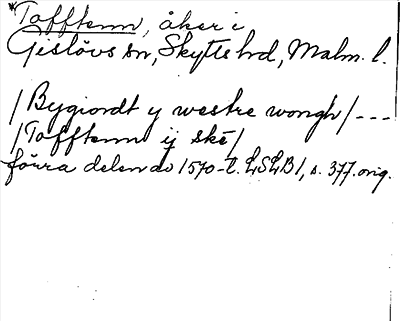 *Tofftenn, åker i
Gislövs sn, Skytts hd, Malm. l.
/Bygiordt y westre wongh/---
/Tofftenn ij ske/
förra delen av 1570-t. LSLB1, s. 377. orig.